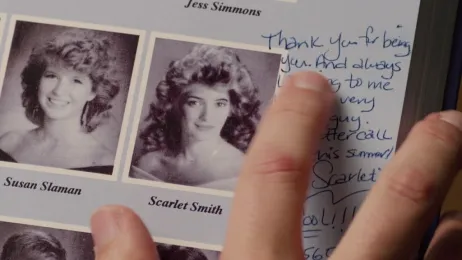 Jess Simmons
Susan Slaman
Scarlet Smith
Thank you for being
you. And always
to me
very
guy.
call
this summer!
Scarlet
COOL!!!